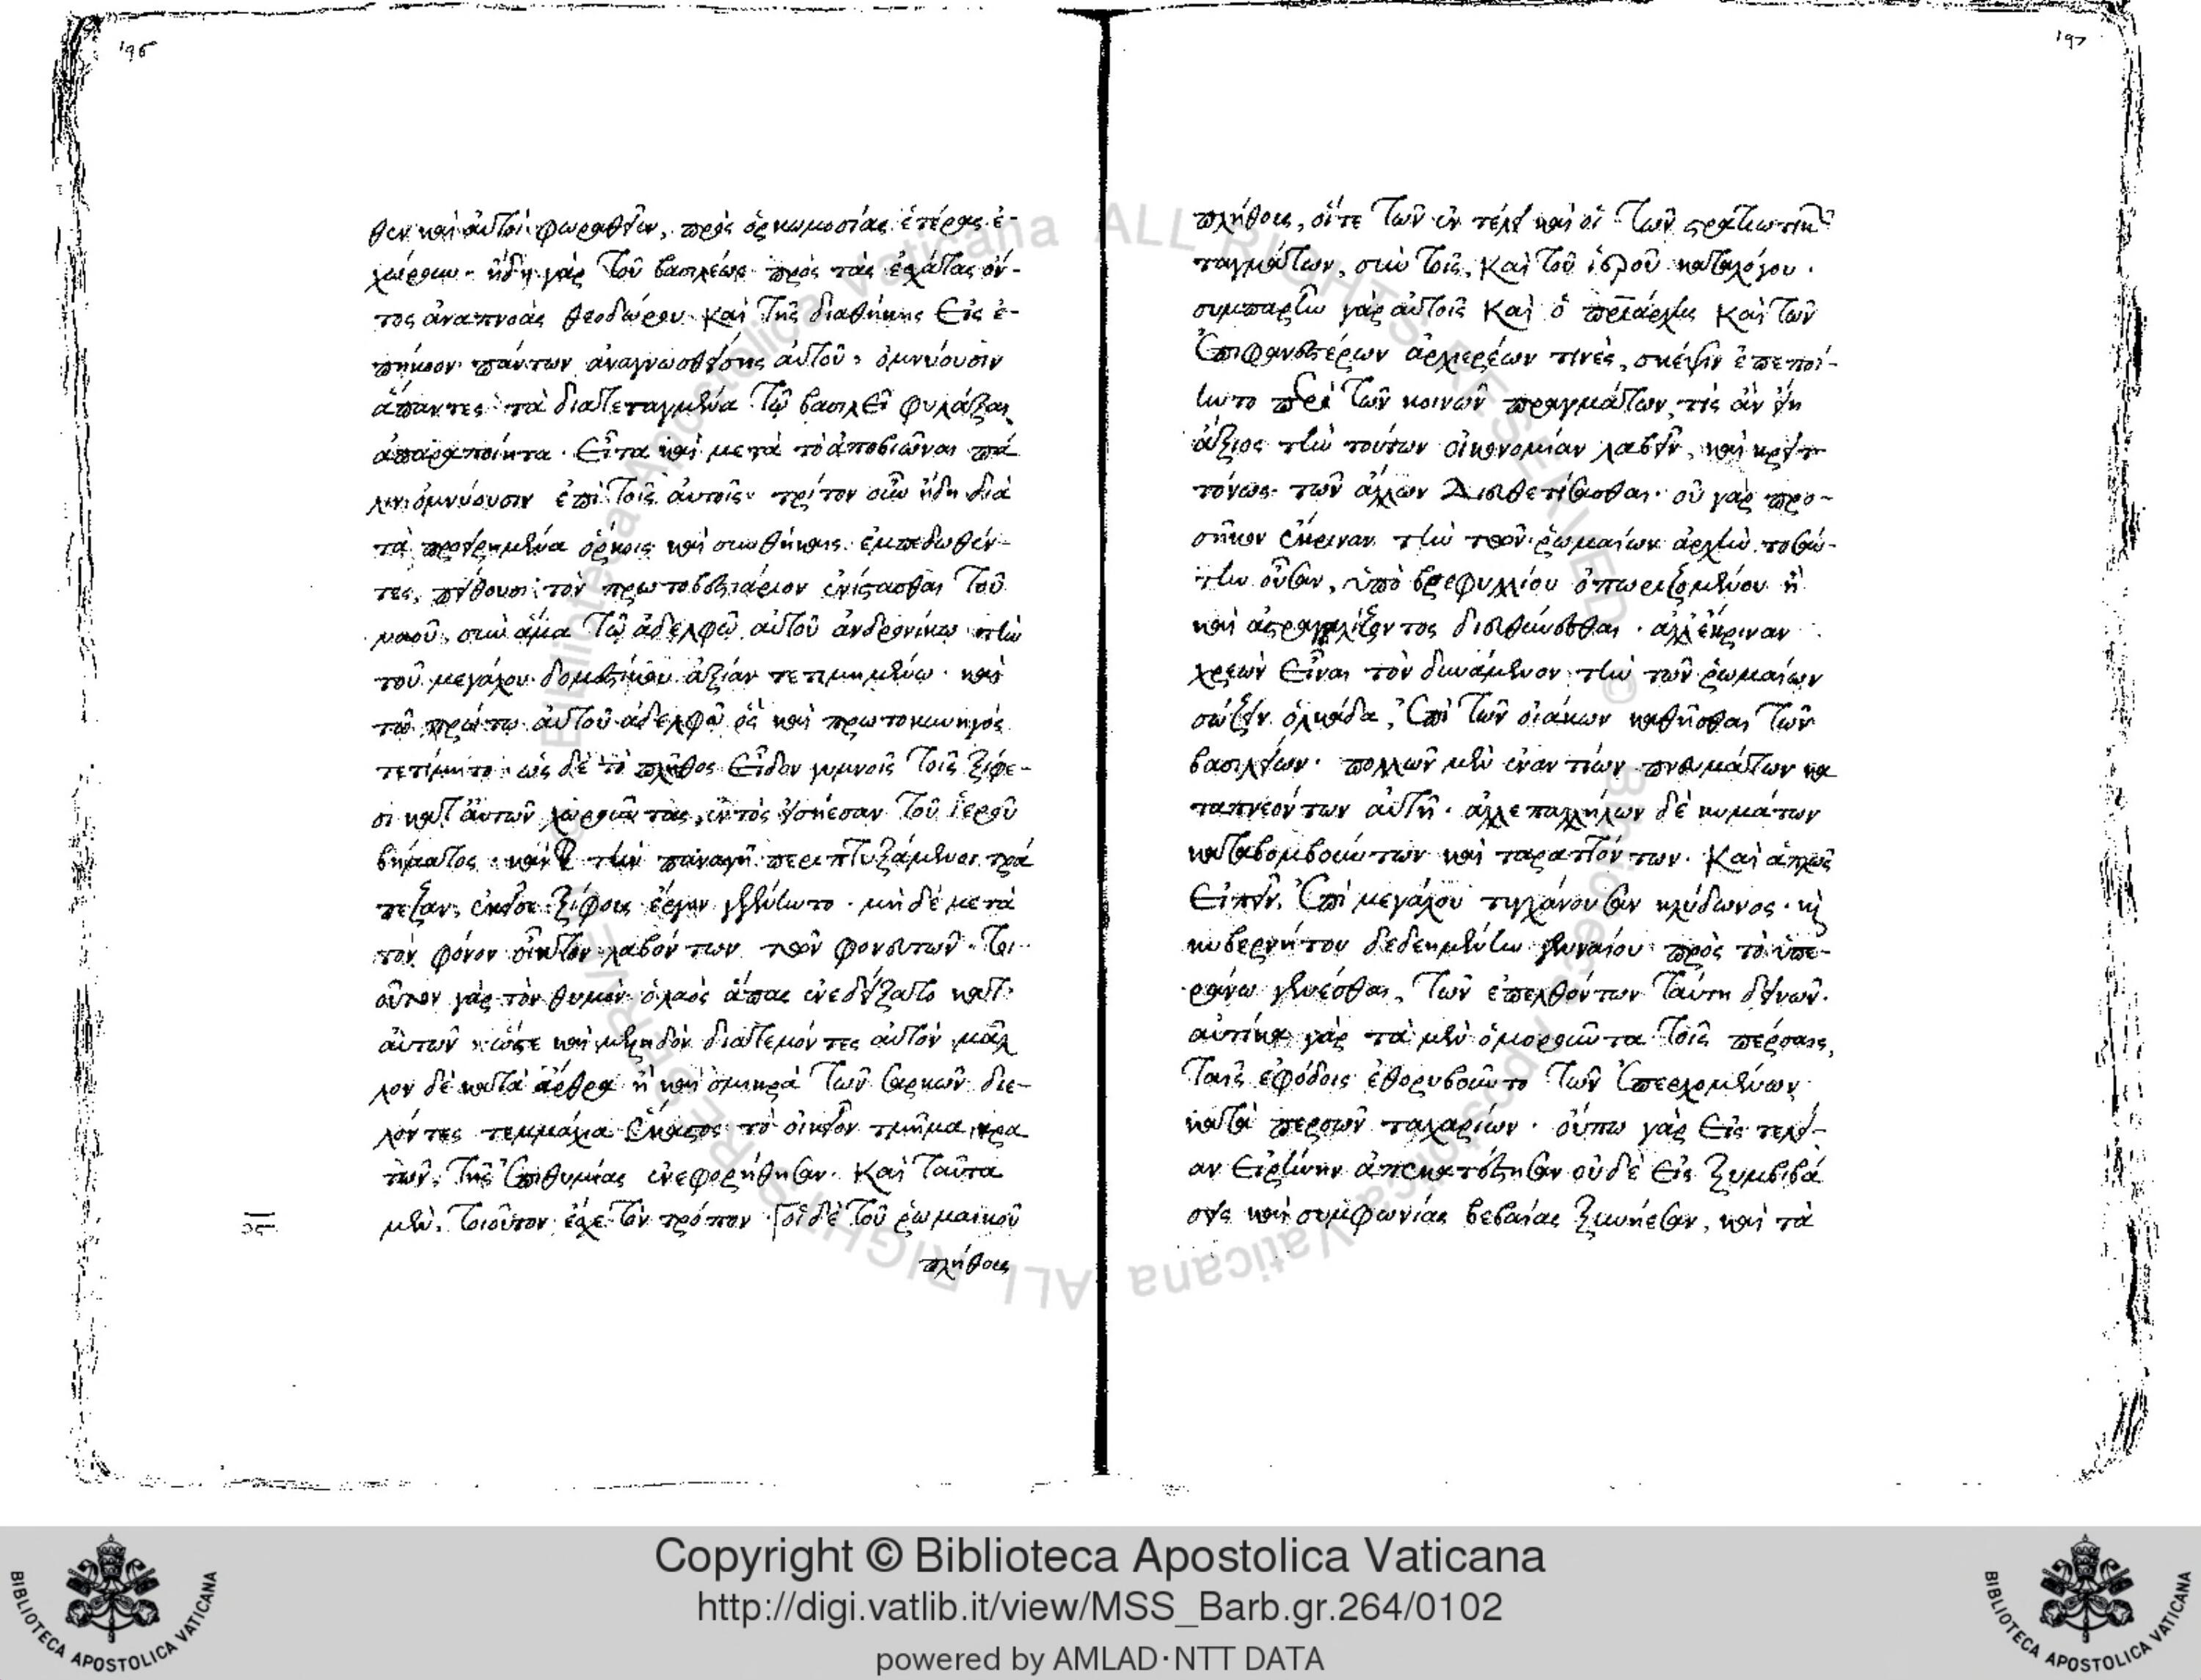 196
θεν καὶ αὐτοὶ φωραθεῖεν, πρὸς ὁρκωμοσίας ἑτέρας ἐ-
χώρουν. ἤδη γὰρ τοῦ βασιλέως πρὸς τὰς ἐσχάτας ὄν-
τος ἀναπνοὰς θεοδώρου καὶ τῆς διαθήκης εἰς ἐ-
πήκοον πάντων ἀναγνωσθείσης αὐτοῦ, ὀμνύουσιν
ἅπαντες τὰ διατεταγμένα τῷ βασιλεῖ φυλάξαι
ἀπαραποίητα. εἶτα καὶ μετὰ τὸ ἀποβιῶναι πά
λιν ὀμνύουσιν ἐπὶ τοῖς αὐτοῖς. τρίτον οὖν ἤδη διὰ
τὰ προειρημένα ὅρκοις καὶ συνθήκαις ἐμπεδωθέν-
τες, πείθουσι τὸν πρωτοβεστιάριον ἐνίστασθαι τοῦ
ναοῦ, σὺν ἅμα τῷ ἀδελφῷ αὐτοῦ ἀνδρονίκῳ τὴν
τοῦ μεγάλου δομεστίκου ἀξίαν τετιμημένῳ. καὶ
τῷ πρώτῳ αὐτοῦ ἀδελφῷ ὃς καὶ πρωτοκυνηγὸς
τετίμητο. ὡς δὲ τὸ πλῆθος εἶδον γυμνοῖς τοῖς ξίφε-
σι κατ' αὐτῶν χωροῦντας, ἐντὸς εἰσήεσαν τοῦ ἱεροῦ
βήματος. καὶ τὴν παναγῆ περιπτυξάμενοι τρά
πεζαν, ἐκεῖσε ξίφους ἔργον γεγένηντο. μὴ δὲ μετὰ
τὸν φόνον οἶκτον λαβόντων τῶν φονευτῶν. τοι
οῦτον γὰρ τὸν θυμὸν ὁ λαὸς ἅπας ἐνεδείξατο κατ'
αὐτῶν. ὥστε καὶ μεληδὸν διατεμόντες αὐτὸν μᾶλ
λον δὲ κατὰ ἄρθρα ἢ καὶ σμικρὰ τῶν σαρκῶν διε-
λόντες τεμμάχια ἕκαστος τὸ οἰκεῖον τμῆμα κρα
τῶν, τῆς ἐπιθυμίας ἐνεφορήθησαν. καὶ ταῦτα
μὲν, τοιοῦτον ἔσχε τὸν τρόπον. οἱ δὲ τοῦ ῥωμαικοῦ
πλήθους
197
πλήθους, οἵτε τῶν ἐν τέλει καὶ οἱ τῶν στρατιωτικῶν
ταγμάτων, σὺν τοῖς, καὶ τοῦ ἱεροῦ καταλόγου.
συμπαρῆν γὰρ αὐτοῖς καὶ ὁ πριάρχης καὶ τῶν
ἐπιφανεστέρων ἀρχιερέων τινὲς, σκέψιν ἐπεποί-
ηντο περὶ τῶν κοινῶν πραγμάτων, τίς ἂν εἴη
ἄξιος τὴν τούτων οἰκονομίαν λαβεῖν, καὶ κρειτ
τόνως τῶν ἄλλων διευθετήσασθαι. οὐ γὰρ προ-
σῆκον ἔκριναν τὴν τῶν ῥωμαίων ἀρχὴν τοσαύ-
την οὖσαν, ὑπὸ βρεφυλλίου ὀπωριζομένου ἢ
καὶ ἀστραγαλίζοντος διευθύνεσθαι. ἀλλ' ἔκριναν
χρεὼν εἶναι τὸν δυνάμενον τὴν τῶν ῥωμαίων
σώζειν ὁλκάδα, ἐπὶ τῶν οἰάκων καθῆσθαι τῶν
βασιλείων. πολλῶν μὲν ἐναντίων πνευμάτων κα
ταπνεόντων αὐτῇ. ἀλλεπαλλήλων δὲ κυμάτων
καταβομβούντων καὶ ταραττόντων. καὶ ἁπλῶς
εἰπεῖν, ἐπὶ μεγάλου τυγχάνουσαν κλύδωνος. καὶ
κυβερνήτου δεδεημένην γενναίου πρὸς τὸ ὑπε-
ράνω γενέσθαι, τῶν ἐπελθόντων ταύτῃ δεινῶν.
αὐτίκα γὰρ τὰ μὲν ὁμοροῦντα τοῖς πέρσαις,
ταῖς ἐφόδοις ἐθορυβοῦντο τῶν ἐπερχομένων
κατὰ περσῶν ταχαρίων. οὔπω γὰρ εἰς τελεί-
αν εἰρήνην ἀποκατέστησαν οὐδὲ εἰς ξυμβιβά
σεις καὶ συμφωνίας βεβαίας ξυνήεσαν, καὶ τὰ
Copyright © Biblioteca Apostolica Vaticana
http://digi.vatlib.it/view/MSS_Barb.gr.264/0102
powered by AMLAD·NTT DATA
BIBLIOTECA APOSTOLICA VATICANA
BIBLIOTECA APOSTOLICA VATICANA